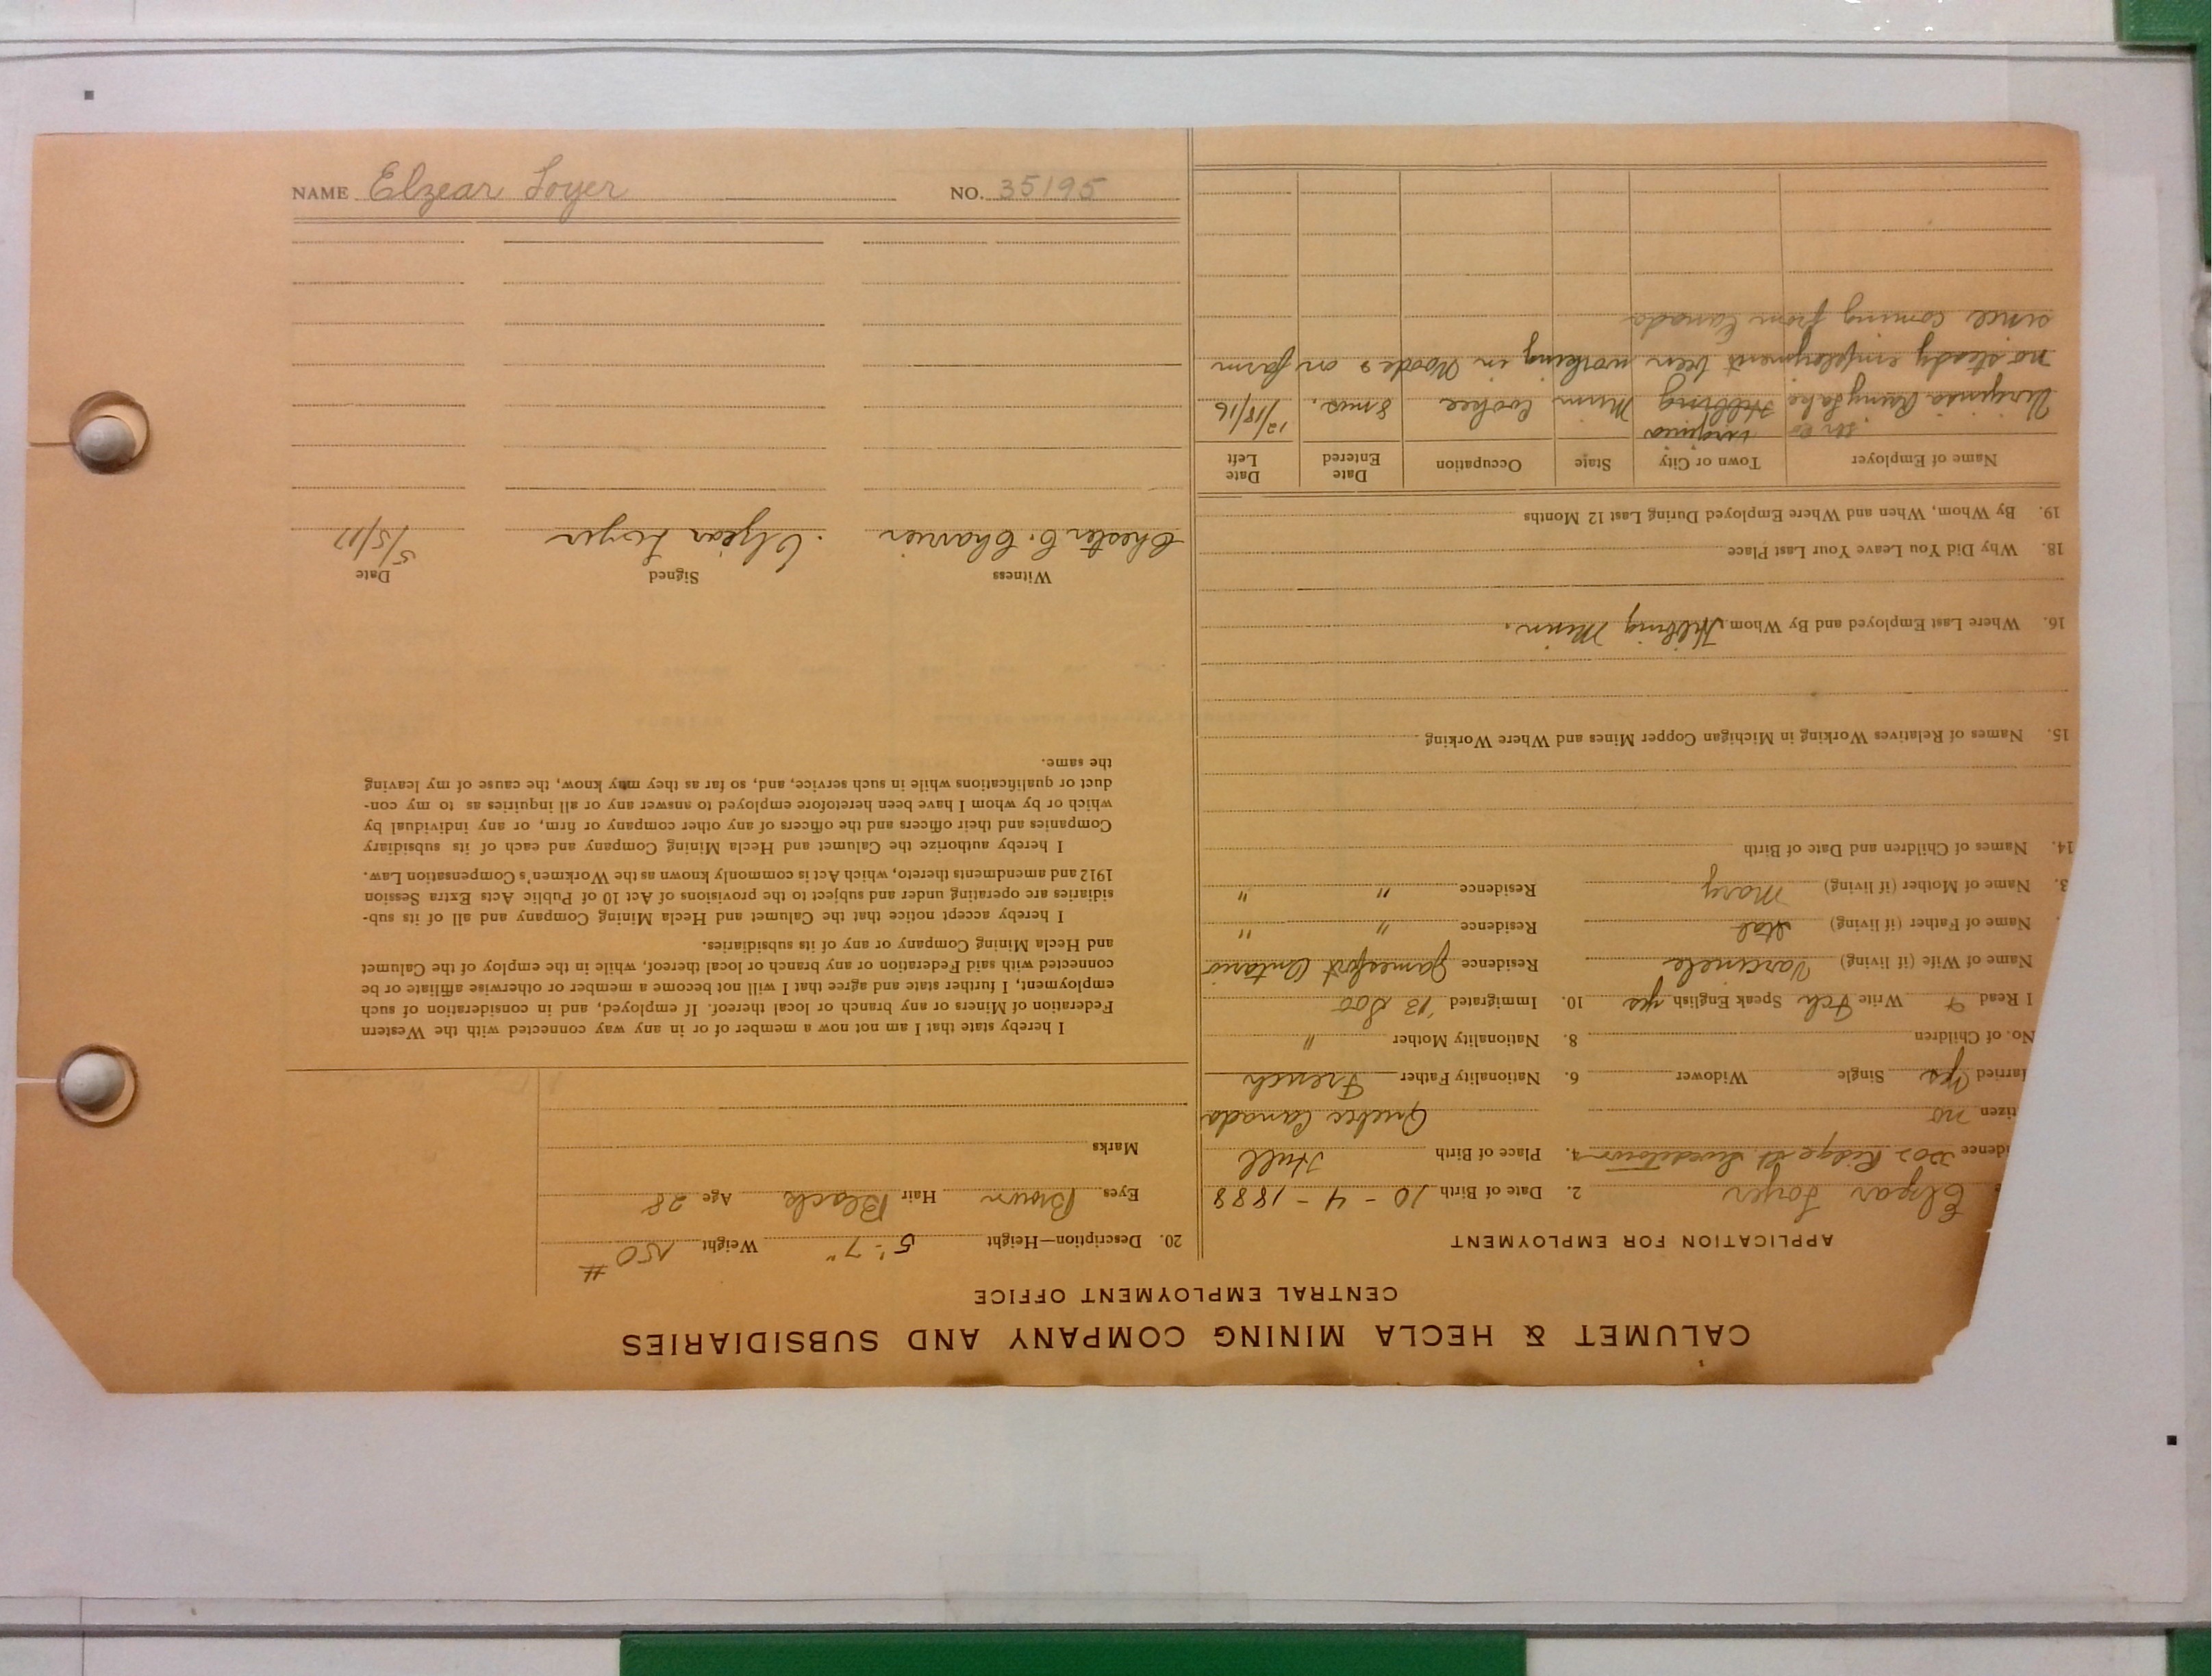 CALUMET & HECLA MINING COMPANY AND SUBSIDIARIES
CENTRAL EMPLOYMENT OFFICE
APPLICATION FOR EMPLOYMENT
Elzear Loyer 2. Date of Birth 10 - 4 - 1888
idence Ridge St 4. Place of Birth Hull
tizen no Quebec Canada
larried Yes Single Widower 6. Nationality Father French
No. of Children 8. Nationality Mother "
I Read Write Fch Speak English yes 10. Immigrated '13 Soo
Name of Wife (if living) Residence Jamesfort Ontario
Name of Father (if living) Residence " "
3. Name of Mother (if living) Mary Residence " "
14. Names of Children and Date of Birth
15. Names of Relatives Working in Michigan Copper Mines and Where Working
16. Where Last Employed and By Whom Hibbing Minn.
18. Why Did You Leave Your Last Place
19. By Whom, When and Where Employed During Last 12 Months
Name of Employer Town or City State Occupation Date Entered Date Left
Virginia
Virginia Rainy Lake Hibbing Minn Cookee 8 mos. 12/18/16
no steady employment been working in Woods & on farm
since coming from Canada
20. Description—Height 5'-7" Weight 150#
Eyes Brown Hair Black Age 28
Marks
I hereby state that I am not now a member of or in any way connected with the Western
Federation of Miners or any branch or local thereof. If employed, and in consideration of such
employment, I further state and agree that I will not become a member or otherwise affiliate or be
connected with said Federation or any branch or local thereof, while in the employ of the Calumet
and Hecla Mining Company or any of its subsidiaries.
I hereby accept notice that the Calumet and Hecla Mining Company and all of its sub-
sidiaries are operating under and subject to the provisions of Act 10 of Public Acts Extra Session
1912 and amendments thereto, which Act is commonly known as the Workmen's Compensation Law.
I hereby authorize the Calumet and Hecla Mining Company and each of its subsidiary
Companies and their officers and the officers of any other company or firm, or any individual by
which or by whom I have been heretofore employed to answer any or all inquiries as to my con-
duct or qualifications while in such service, and, so far as they may know, the cause of my leaving
the same.
Witness Signed Date
Chester C. Charrier Elzear Loyer 5/5/17
NAME Elzear Loyer NO. 35195